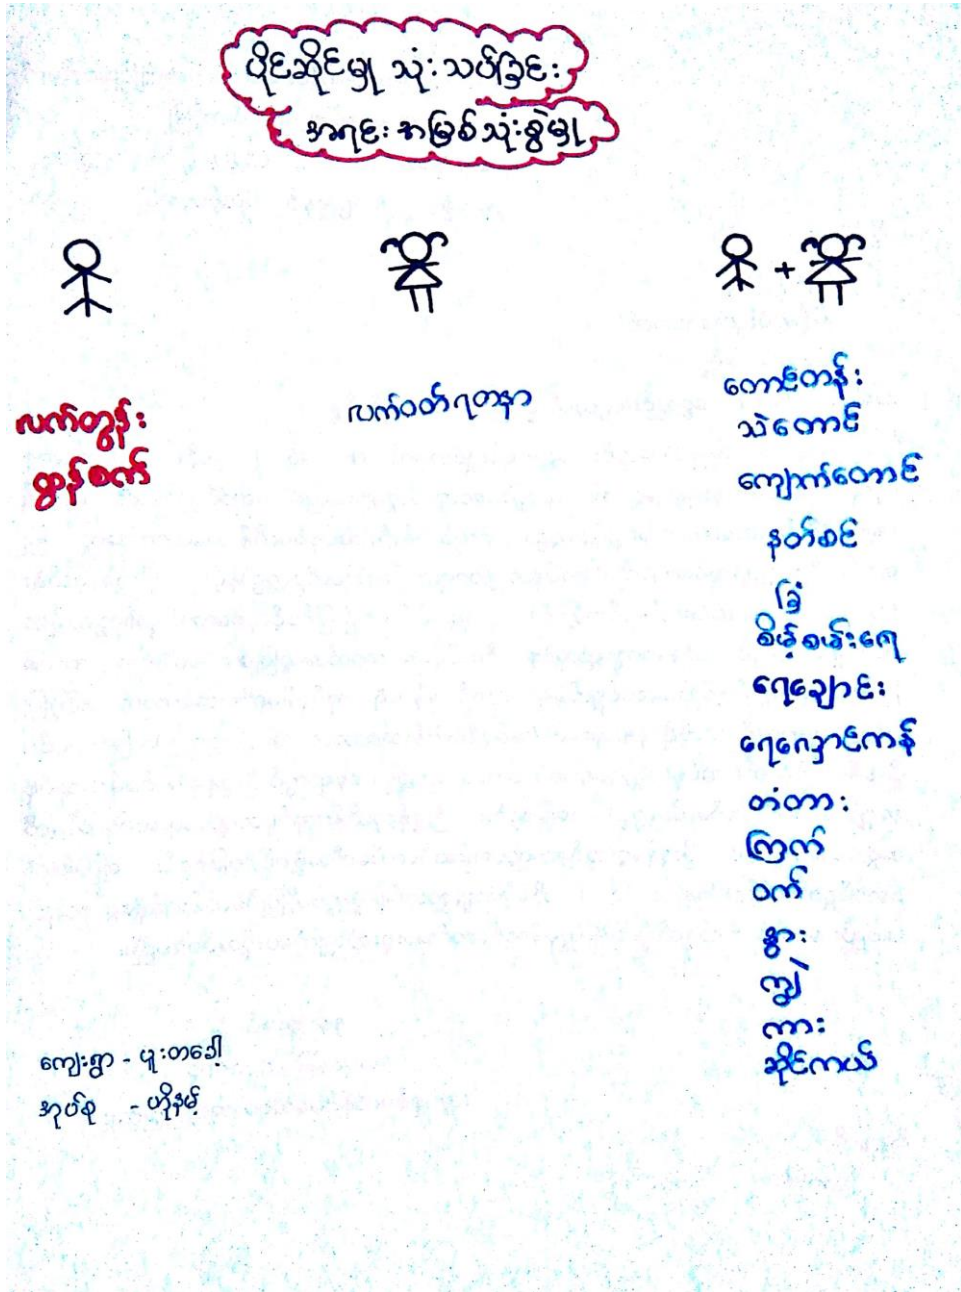 ပိုင်ဆိုင်မှု သုံးသပ်ခြင်း
အရင်းအမြစ်သုံးစွဲမှု
+
လက်တွန်း
ထွန်စက်
လက်ဝတ်ရတနာ
တောင်တန်း
သဲတောင်
ကျောက်တောင်
နတ်စင်
ခြံ
စိမ့်စမ်းရေ
ရေချောင်း
ရေလှောင်ကန်
တံတား
ကြက်
ဝက်
နွား
ကျွဲ
ကား
ဆိုင်ကယ်
ကျေးရွာ - ယူးတခေါ့
အုပ်စု - ဟိုနမ့်